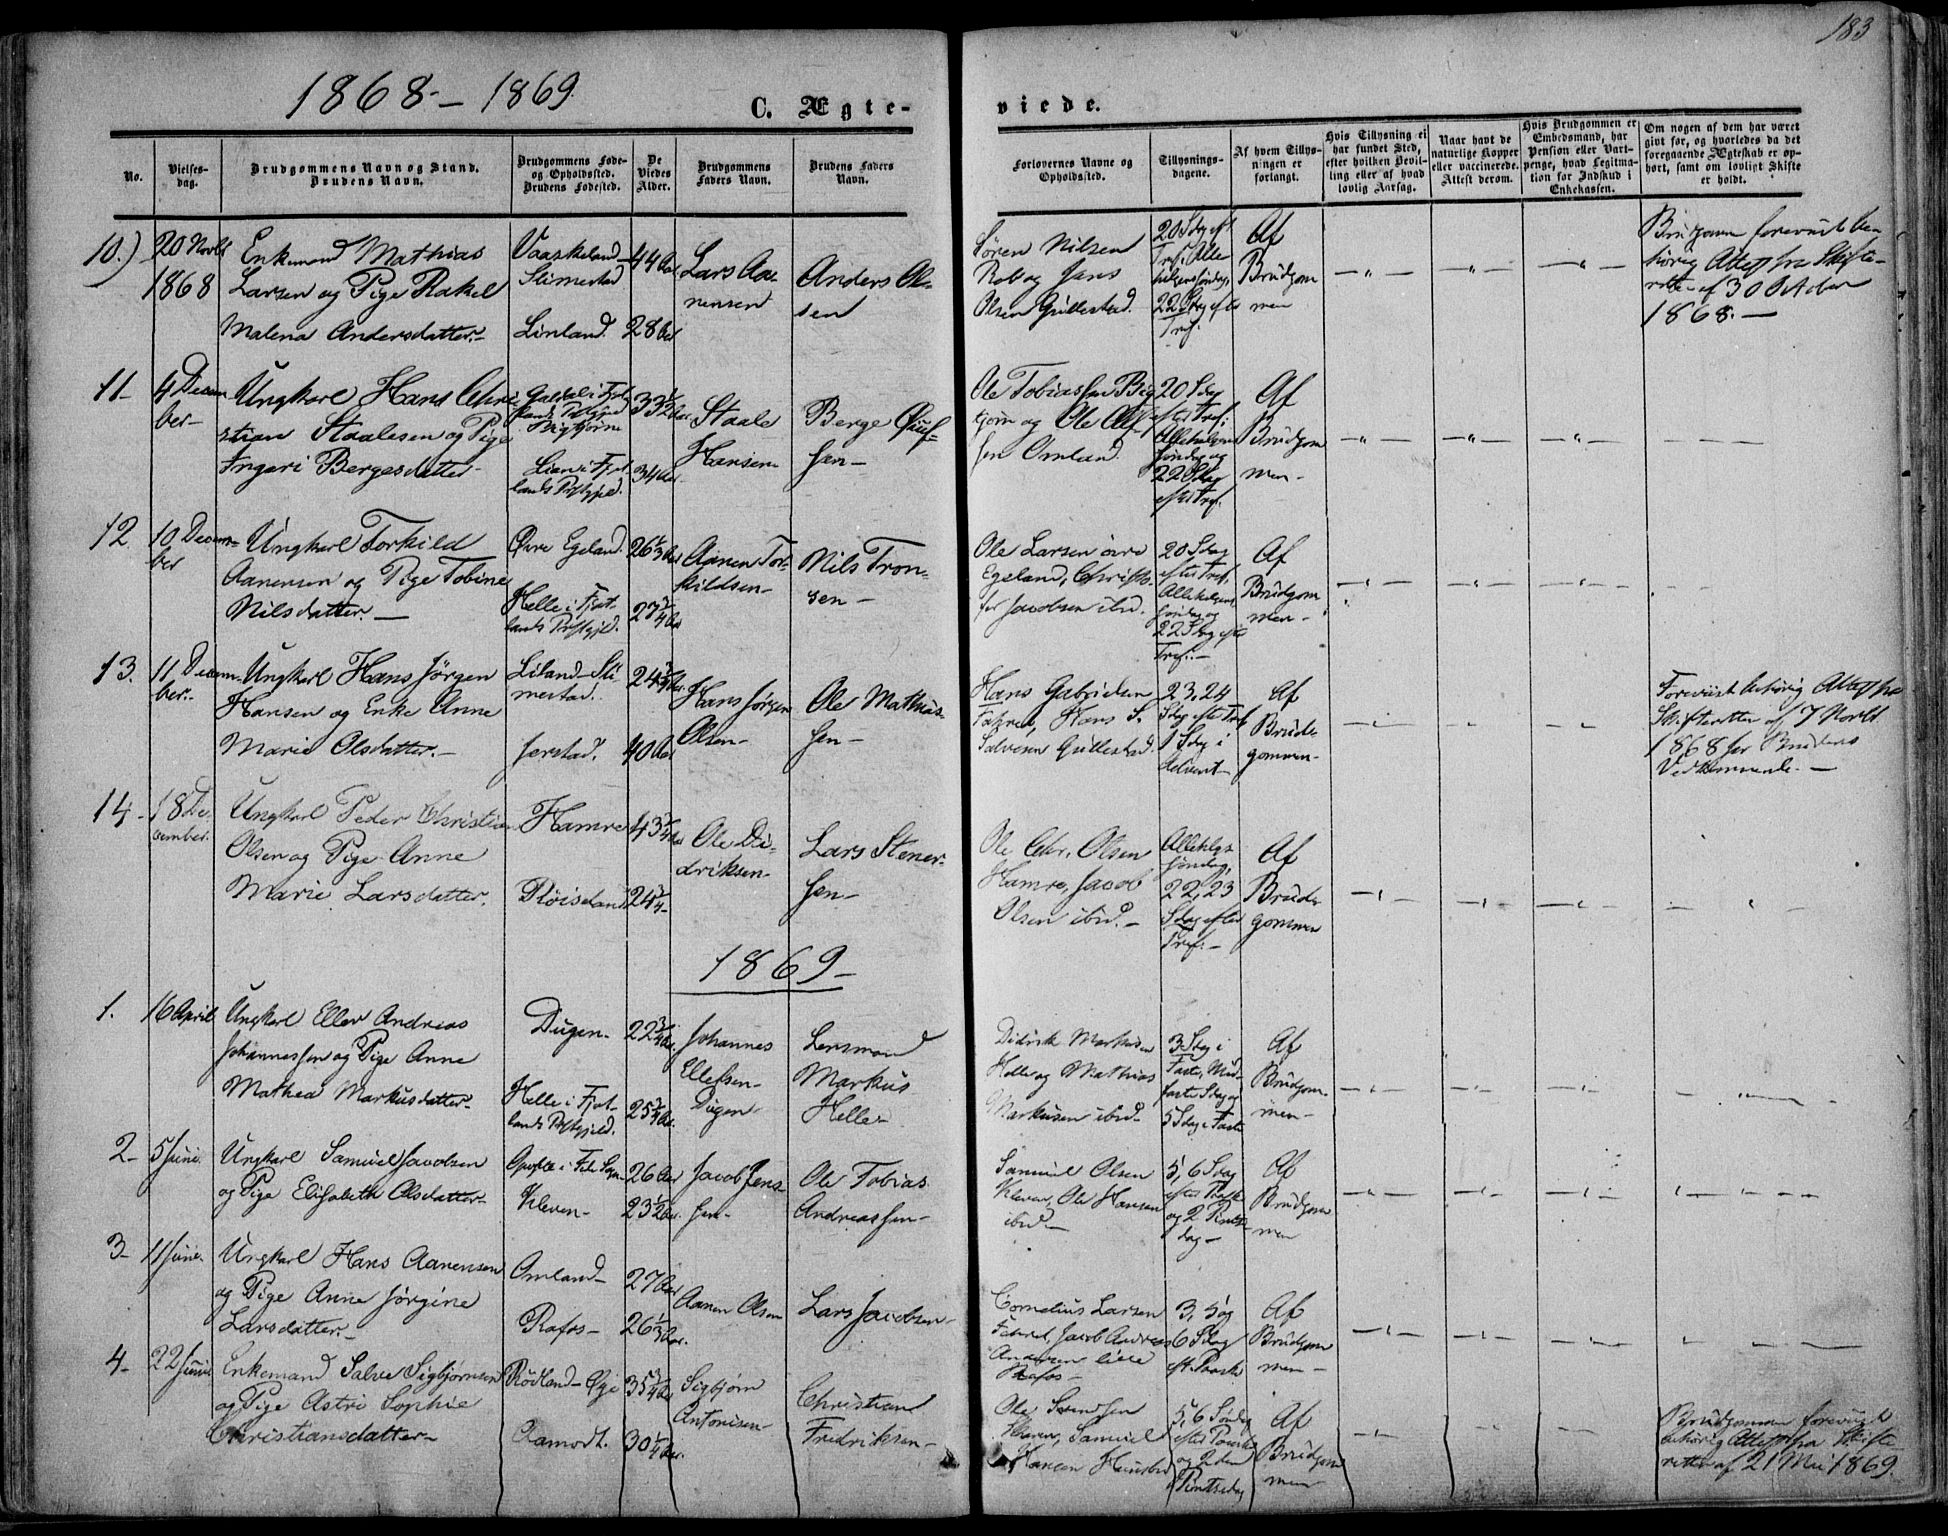 183
1868 – 1869.
C. Ægte-
viede.
No.
Vielses-
dag.
Brudgommens Navn og Stand.
Brudens Navn.
Brudgommens Føde-
og Opholdssted.
Brudens Fødested.
De
Viedes
Alder.
Brudgommens
Faders Navn.
Brudens Faders
Navn.
Forlovernes Navne og
Opholdssted.
Tillysnings-
dagene.
Af hvem Tillys-
ningen er
forlangt.
Hvis Tillysning ei
har fundet Sted,
efter hvilken Bevil-
ling eller af hvad
lovlig Aarsag.
Naar havt de
naturlige Kopper
eller vaccinerede.
Attest derom.
Hvis Brudgommen er
Embedsmand, har
Pension eller Vart-
penge, hvad Legitima-
tion for Indskud i
Enkekassen.
Om nogen af dem har været
givt før, og hvorledes da det
foregaaende Ægteskab er op-
hørt, samt om lovligt Skifte
er holdt.
10.)
20 Novbr
1868
Enkemand Mathias
Larsen og Pige Rakel
Malena Andersdatter.–
Vaaskeland–
Slimestad
Linland.
44 Aar
28 Aar
Lars Aa-
nensen
Anders Ol-
sen
Søren Nilsen
Rob og Jens
Olsen Gullestad.
20 Sdag eft
Tref. Alle-
helgensSøndag,
22 Sdag efter
Tref.
Af
Brudgom
men
Brudgom forevist be-
hørig Attest fra Skifte-
retten af 30 October
1868.–
11-
4 Decem
ber–
Ungkarl Hans Chri-
stian Staalesen og Pige
Ingeri Bergesdatter–
Galdal i Fjot-
lands Præstgjeld
Bigkjørn
Lian i Fjot-
lands Præstgjeld.
33 1/2 Aar
34 Aar
Staale
Hansen
Berge
sen–
Ole Tobiassen Big
kjørn og Ole Ols
sen Omland.
20 Sdag
efter Tref.
Allehelgens
Søndag og
22 Sdag
efter Tref.
Af
Brudgom
men-
12.
10 Decem-
ber
Ungkarl Torkild
Aanensen og Pige Tobine
Nilsdatter.–
Øvre Egeland.
Helle i Fjot-
lands Præstgjeld.
26 1/3 Aar
27 3/4 Aar
Aanen Tor-
kildsen–
Nils Tron-
sen–
Ole Larsen øvre
Egeland, Christo-
fer Jacobsen ibid.
20 Sdag
efter Tref.
Allehelgens
Søndag og
22 Sdag efter
Tref.–
Af
Brudgom
men-
13.
11 Decem-
ber.-
Ungkarl Hans Jørgen
Hansen og Enke Anne
Marie Olsdatter.–
Liland–Sli
mestad.
Jerstad.
24 3/4 Aar.
40 Aar
Hans Jørgen
Olsen–
Ole Mathias-
sen–
Hans Gabrielsen
Fahret, Hans S.
Salvesen Gullestad.
23, 24
Sdag efter Tref
1 Sdag i
Advent–
Af
Brude
gommen-
Forevist behørig Attest fra
Skifteretten af 7 Novbr.
1868 for Brudens
Vedkommende.–
14-
18 De-
cember.
Ungkarl Peder Christian
Olsen og Pige Anne
Marie Larsdatter.
Hamre
Røisland
43 3/4 Aar
24 1/4-
Ole Di-
driksen–
Lars Stener-
sen–
Ole Chr. Olsen
Hamre, Jacob
Olsen ibid.–
Allehlgs
Søndag,
22, 23
Sdag efter
Tref.–
Af
Brude
gommen
1869–
1.
16 April
Ungkarl Ellev Andreas
Johannessen og Pige Anne
Mathea Markusdatter–
Dugen-
Helle i Fjot-
lands Præstgjeld.
22 3/4 Aar.
25 3/4 Aar.
Johannes
Ellefsen–
Dugen
Lensmand
Markus
Helle–
Didrik Markusen
Helle og Mathias
Markusen ibid–
3 Sdag i
Faste, Mid-
faste Sdag og
5 Sdag i Faste
Af
Brudgom
men-
2-
5 Juni.
Ungkarl Samuel Jacobsen
og Pige Elisabeth Olsdatter–
Kleven–
26 Aar
23 1/2 Aar.
Jacob Jens-
sen–
Ole Tobias
Andreassen–
Samuel Olsen
Kleven, Ole Hansen
ibid–
5, 6 Sdag
efter Paask
og 2 Pints
dag–
Af
Brudgom
men
3-
11 Juni.
Ungkarl Hans Aanensen
og Pige Anne Jørgine
Larsdatter–
Omland–
Rafos–
27 Aar
26 1/3 Aar.
Aanen Olsen
Lars Jacobsen–
Cornelius Larsen
Fahret, Jacob Andreas
Andersen lille
Rafos–
3, 5 og
6 Sdag
eft. Paaske
Af
Brudgom
men–
4-
22 Juni
Enkemand Salve Sigbjørnsen
og Pige Astri Sophie
Christiansdatter–
Rødland–Øye
Aamodt.
35 3/4 Aar
30 1/4 Aar.
Sigbjørn
Antonisen–
Christian
Fredriksen–
Ole Svendsen
Kleven, Samuel
Hansen
5, 6 Søndag
efter Paaske
og 2den
Pintsedag
Af
Brudgom
men
Brudgommen forevist
behørig Attest fra Skifte
retten af 21 Mai 1869.